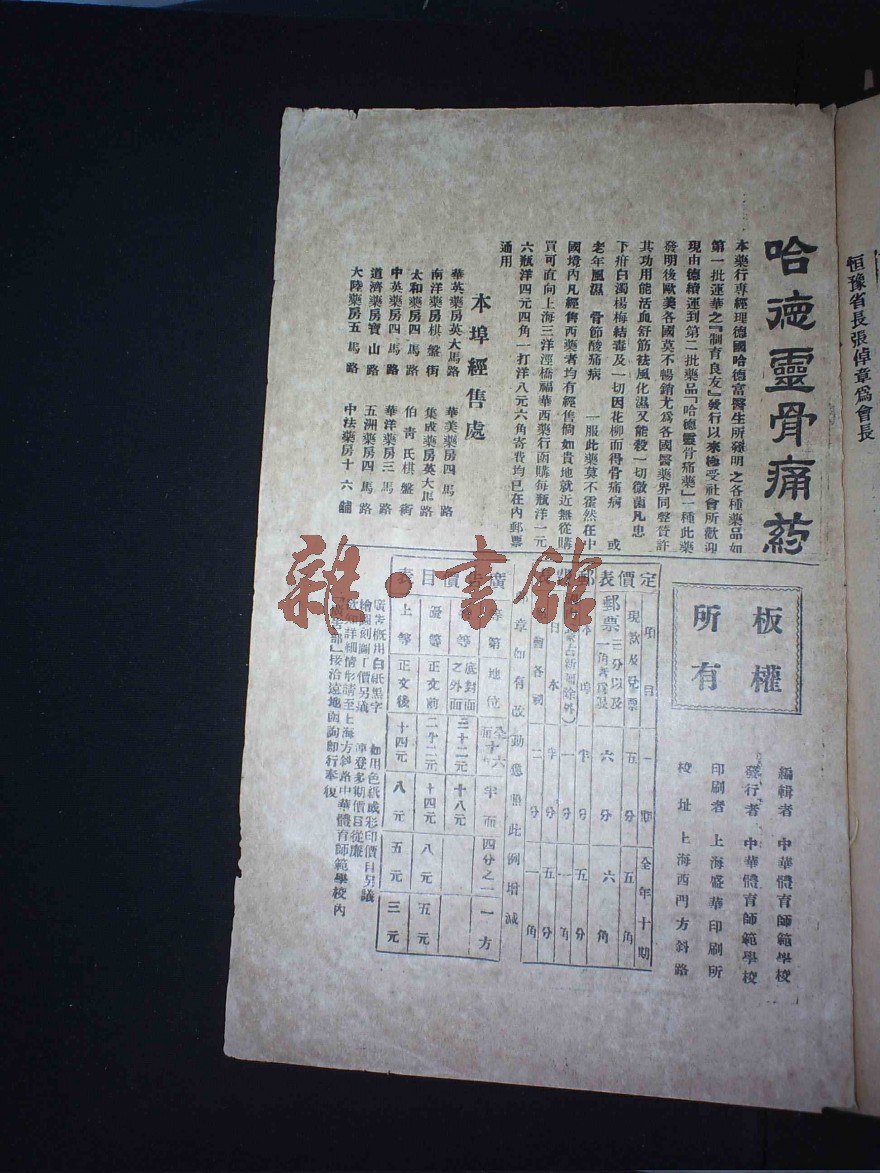 恒豫省長張倬章爲會長
哈德靈骨痛葯
本藥行專經理德國哈德富醫生所發明之各種藥品如
第一批運華之『制育良友』發行以來極受社會所歡迎
現由德續運到第二批藥品『哈德靈骨痛藥』一種此藥
發明後歐美各國莫不暢銷尤爲各國醫藥界同聲贊許
其功用能活血舒筋祛風化濕又能殺一切微菌凡患
下疳白濁楊梅結毒及一切因花柳而得骨痛病　或
老年風濕　骨節酸痛病　一服此藥莫不霍然在中
國境內凡經售西藥者均有經售倘如貴地就近無從購
買可直向上海三洋涇橋福華西藥行函購每瓶洋一元
六瓶洋四元四角一打洋八元六角寄費均已在內郵票
通用
本埠經售處
華英藥房英大馬路　華美藥房四馬路
南洋藥房棋盤街　集成藥房英大馬路
太和藥房四馬路　伯庸氏棋盤街
中英藥房四馬路　華洋藥房三馬路
道濟藥房寶山路　五洲藥房四馬路
大陸藥房五馬路　中法藥房十六舖
板權
所有
編輯者　中華體育師範學校
發行者　中華體育師範學校
印刷者　上海盛華印刷所
校址　上海西門方斜路
定價表郵
項目　一期　全年十期
現欵及兌票　五分　五角
郵票二分以及一角者爲限　六分　六角
埠　半分　五分
蒙古新疆除外）　一分　一角
日本　半分　五分
會各國　二分　二角
章如有改動應照此例增減
廣告價目表
等第　地位　全面　半面　四分之二　一方
等　底封面之外面　三十二元　十八元
優等　正文前　二十二元　十四元　八元　五元
上等　正文後　十四元　八元　五元　三元
廣告概用白紙黑字　如用色紙或彩印價目另議
繪圖刻圖工價另議　連登多期價目從廉
欲知詳細情形請至上海方斜路中華體育師範學校內
部」接洽遠地函詢卽行奉復
雜·書館